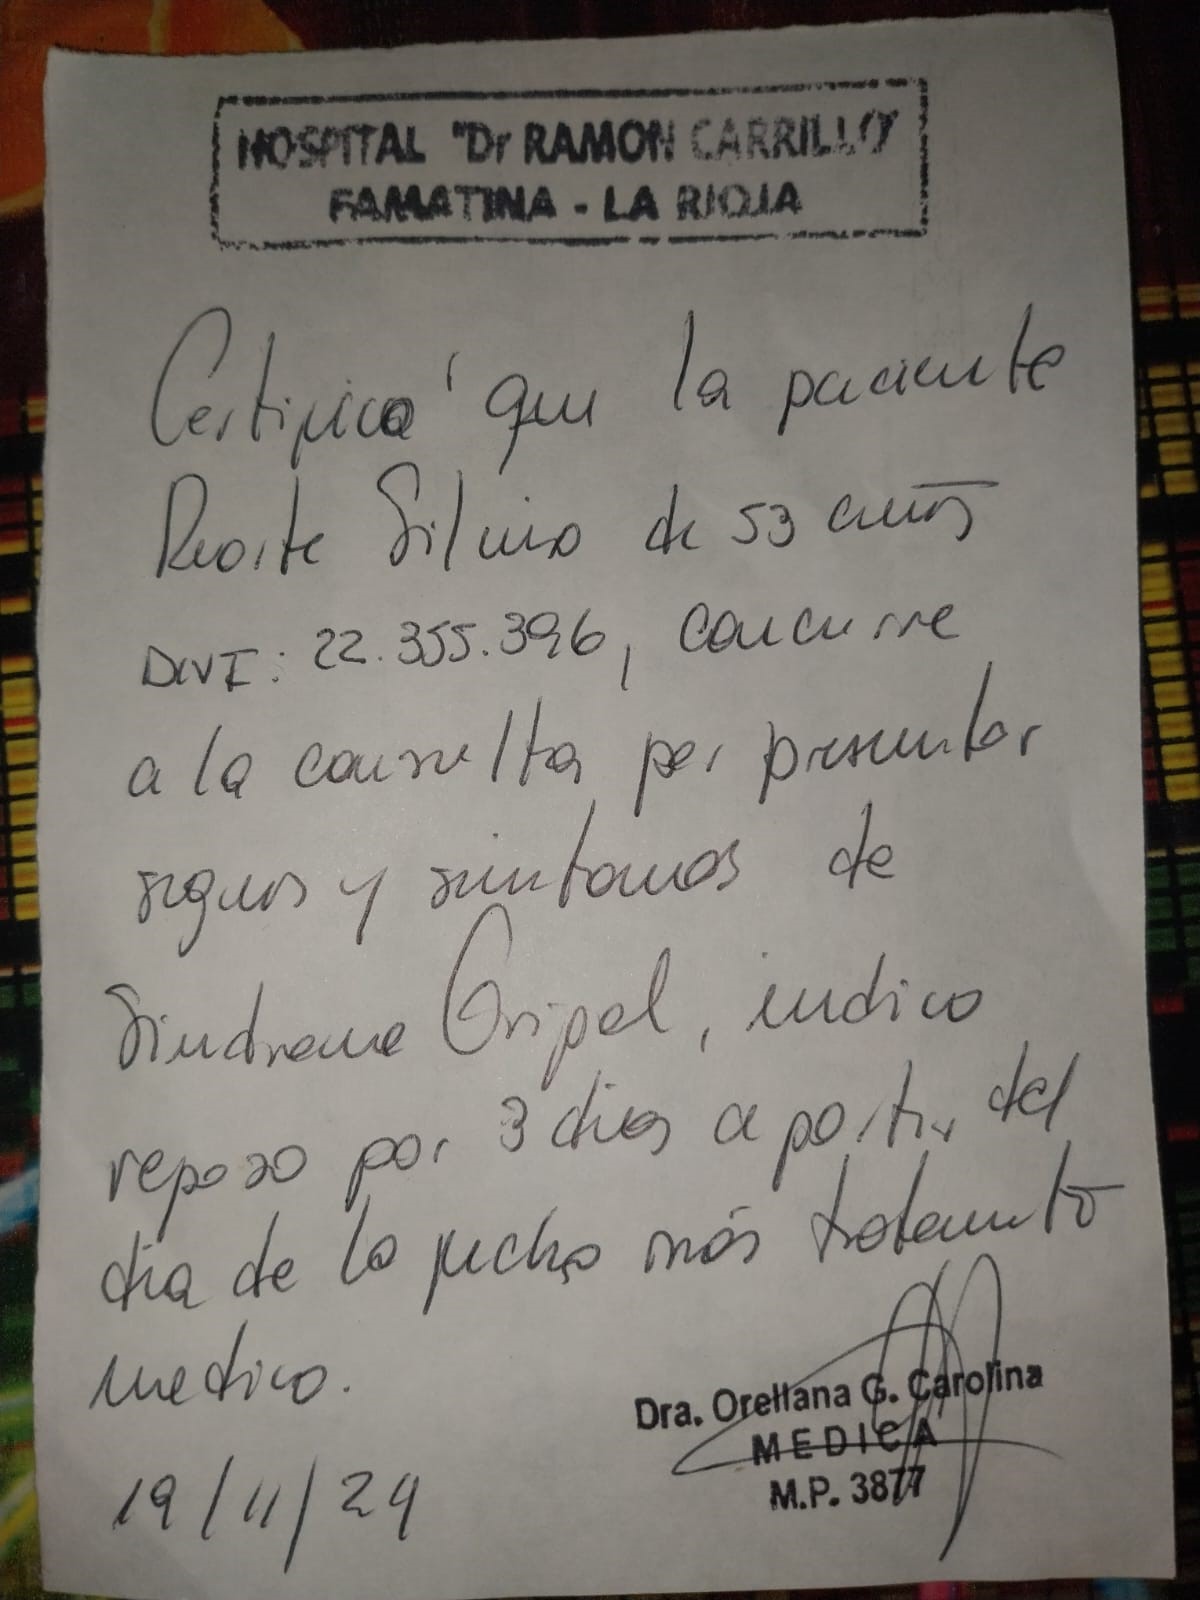 HOSPITAL "Dr RAMON CARRILLO"
FAMATINA - LA RIOJA
Certifico que la paciente
Silvina de 53 años
DNI: 22.355.396, concurre
a la consulta por presentar
signos y sintomas de
Sindrome Gripal, indico
reposo por 3 dias a partir del
dia de la fecha más tratamiento
medico.
19/11/24
Dra. Orellana G. Carolina
MEDICA
M.P. 3877